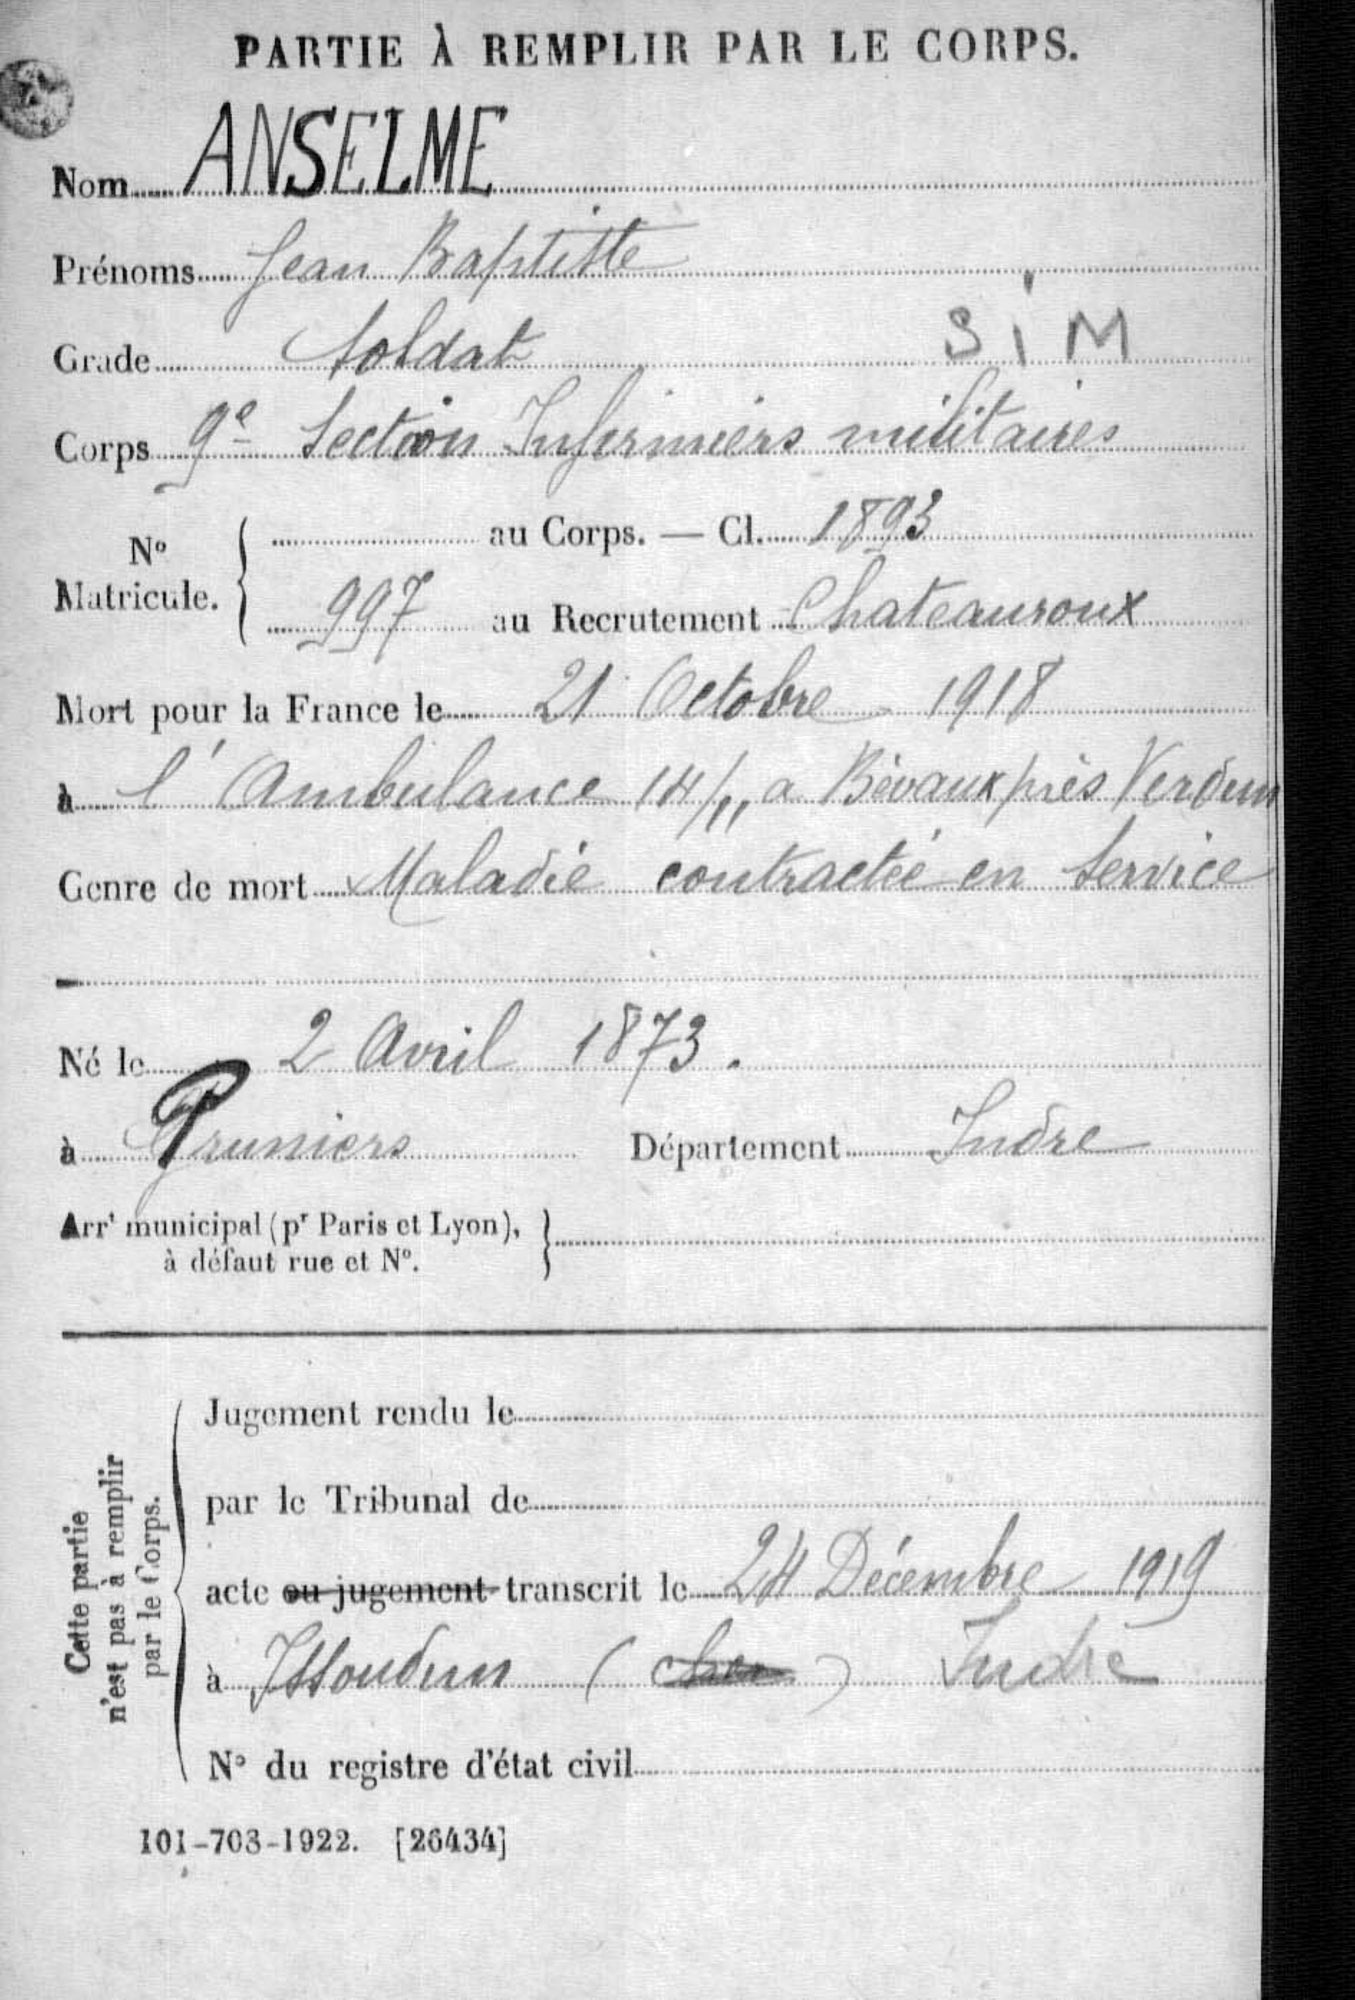 PARTIE À REMPLIR PAR LE CORPS.
Nom ANSELME
Prénoms Jean Baptiste
Grade Soldat SiM
Corps 9e Section Infirmiers militaires
No Matricule. au Corps. — Cl. 1893
997 au Recrutement Chateauroux
Mort pour la France le 21 Octobre 1918
à l'Ambulance 14/11 a Bévaux près Verdun
Genre de mort Maladie contractée en Service
Né le 2 Avril 1873.
à Pruniers Département Indre
Arrt municipal (pr Paris et Lyon),
à défaut rue et No.
Cette partie
n'est pas à remplir
par le Corps.
Jugement rendu le
par le Tribunal de
acte ou jugement transcrit le 24 Décembre 1919
à Issoudun ( ) Indre
No du registre d'état civil
101-708-1922. [26434]